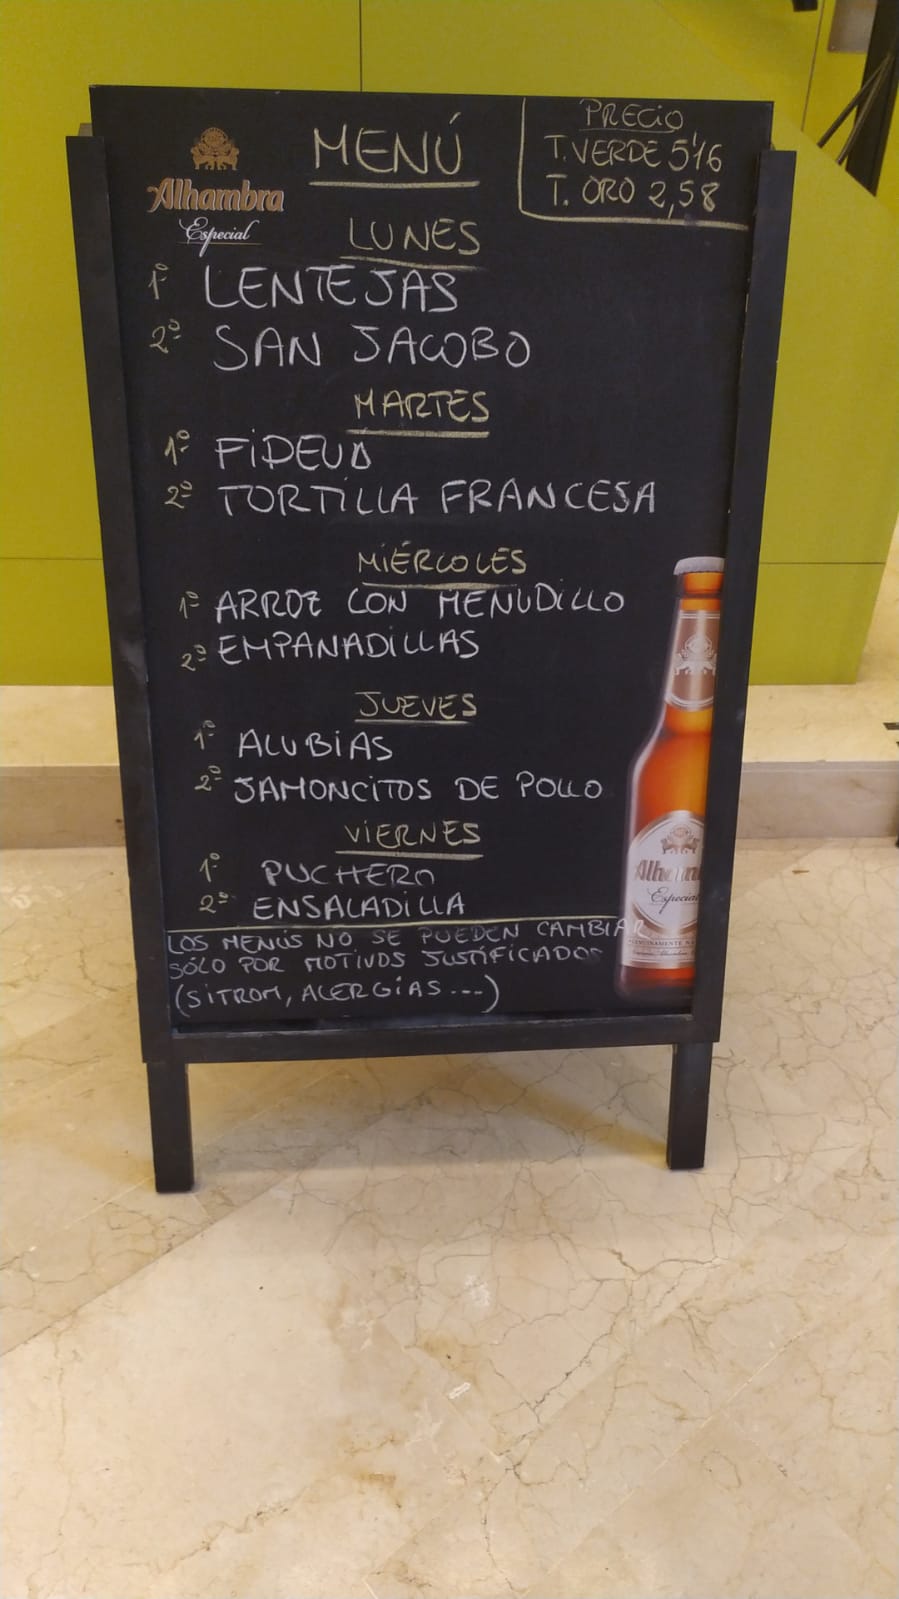 Alhambra
Especial
MENÚ
PRECIO
T. VERDE 5'16
T. ORO 2,58
LUNES
1º LENTEJAS
2º SAN JACOBO
MARTES
1º FIDEUÁ
2º TORTILLA FRANCESA
MIÉRCOLES
1º ARROZ CON MENUDILLO
2º EMPANADILLAS
JUEVES
1º ALUBIAS
2º JAMONCITOS DE POLLO
VIERNES
1º PUCHERO
2º ENSALADILLA
LOS MENÚS NO SE PUEDEN CAMBIAR
SÓLO POR MOTIVOS JUSTIFICADOS
(SITROM, ALERGÍAS...--)
Alham
Especial